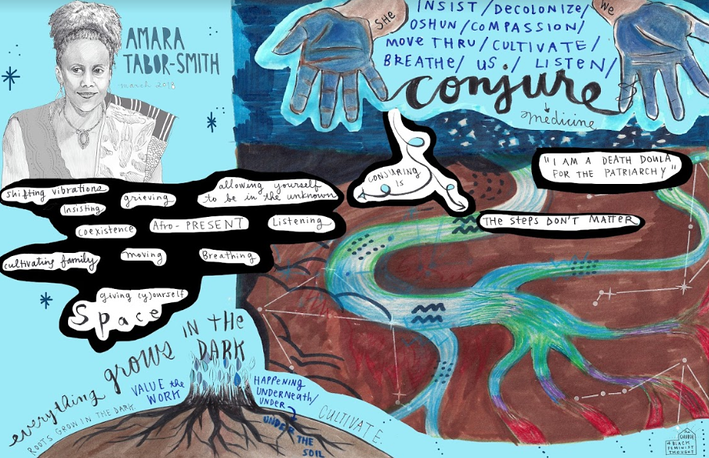 AMARA
TABOR-SMITH
march 2018
SHE
WE
INSIST / DECOLONIZE /
OSHUN / COMPASSION /
MOVE THRU / CULTIVATE /
BREATHE / US / LISTEN /
conjure
medicine
CONJURING
IS
"I AM A DEATH DOULA
FOR THE PATRIARCHY"
THE STEPS DON'T MATTER
shifting vibrations
insisting
grieving
allowing yourself
to be in the unknown
coexistence
Afro-PRESENT
Listening
cultivating family
moving
Breathing
giving (y)ourself
Space
everything grows IN THE
DARK
ROOTS GROW IN THE DARK
VALUE the
WORK
HAPPENING
UNDERNEATH/
UNDER
UNDER
THE
SOIL
CULTIVATE.
BLACK
FEMINIST